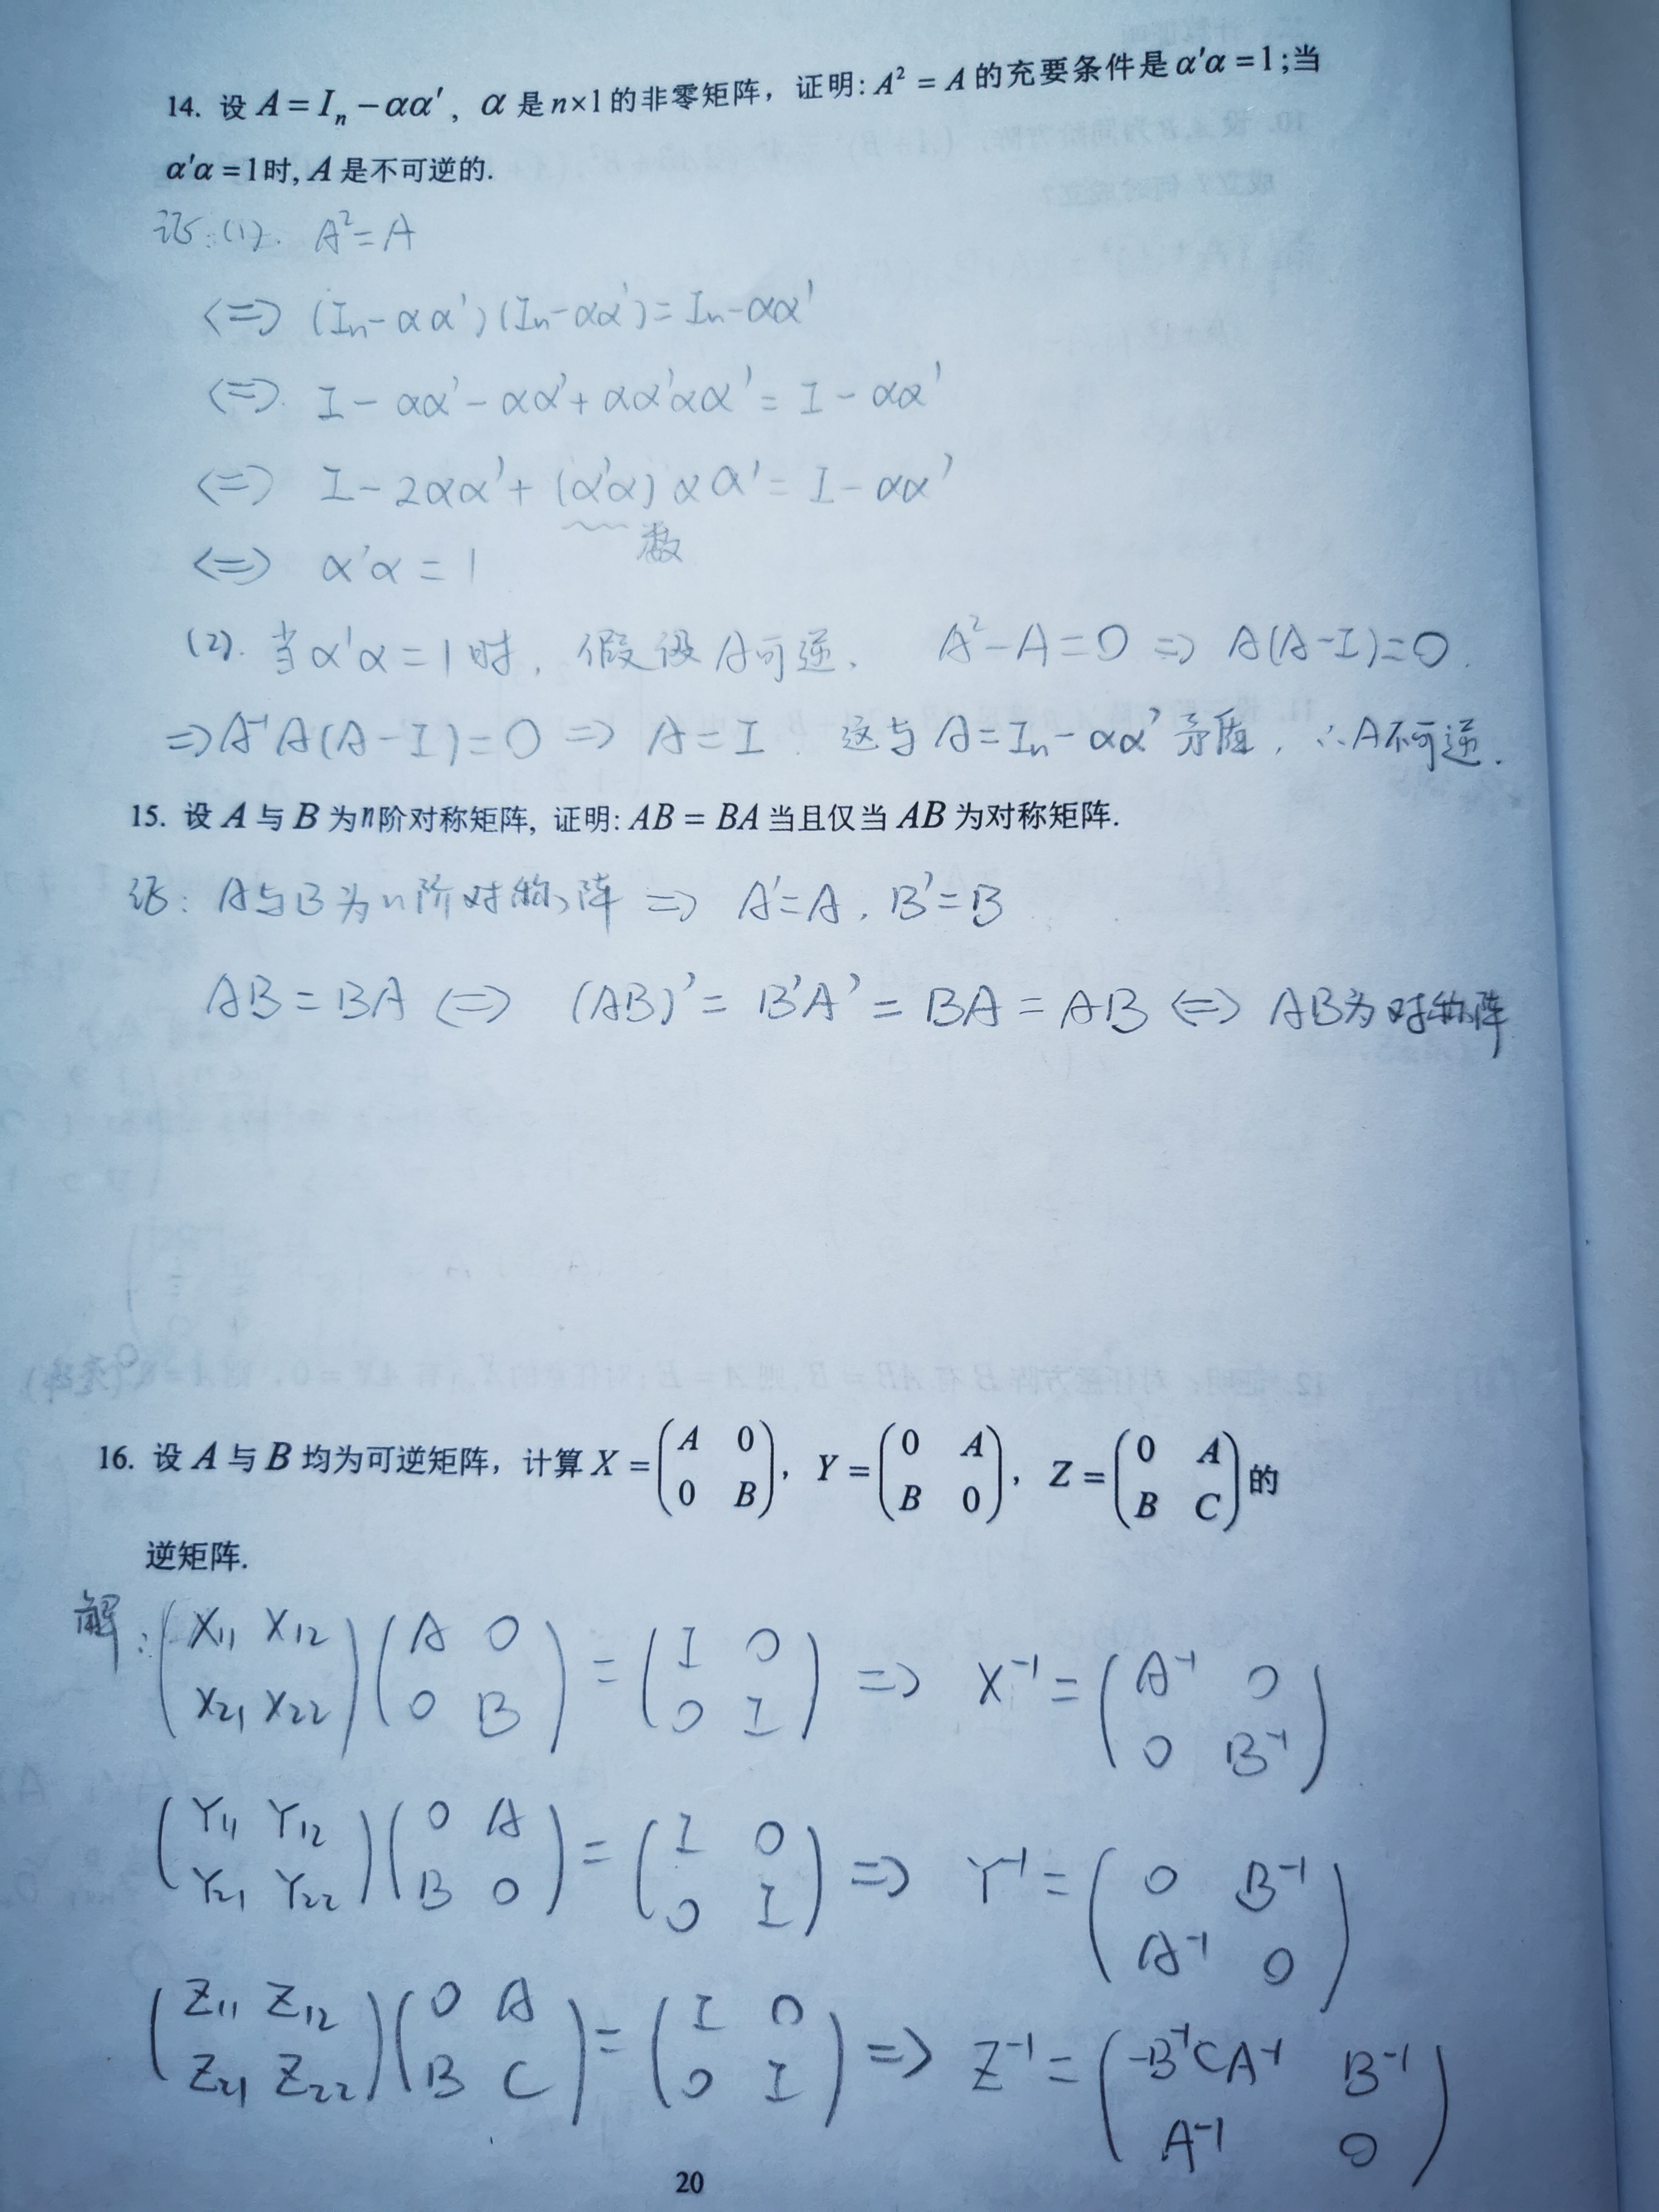 14. 设 A = Iₙ − αα′, α 是 n×1 的非零矩阵, 证明: A² = A 的充要条件是 α′α = 1; 当
α′α = 1 时, A 是不可逆的.
证: (1). A² = A
<=> (Iₙ − αα′)(Iₙ − αα′) = Iₙ − αα′
<=> I − αα′ − αα′ + αα′αα′ = I − αα′
<=> I − 2αα′ + (α′α)αα′ = I − αα′
数
<=> α′α = 1
(2). 当 α′α = 1 时, 假设 A 可逆, A² − A = 0 => A(A − I) = 0.
=> A⁻¹A(A − I) = 0 => A = I. 这与 A = Iₙ − αα′ 矛盾, ∴ A 不可逆.
15. 设 A 与 B 为 n 阶对称矩阵, 证明: AB = BA 当且仅当 AB 为对称矩阵.
证: A 与 B 为 n 阶对称阵 => A′ = A, B′ = B
AB = BA <=> (AB)′ = B′A′ = BA = AB <=> AB 为对称阵
16. 设 A 与 B 均为可逆矩阵, 计算 X = (A 0; 0 B), Y = (0 A; B 0), Z = (0 A; B C) 的
逆矩阵.
解: (X₁₁ X₁₂; X₂₁ X₂₂)(A 0; 0 B) = (I 0; 0 I) => X⁻¹ = (A⁻¹ 0; 0 B⁻¹)
(Y₁₁ Y₁₂; Y₂₁ Y₂₂)(0 A; B 0) = (I 0; 0 I) => Y⁻¹ = (0 B⁻¹; A⁻¹ 0)
(Z₁₁ Z₁₂; Z₂₁ Z₂₂)(0 A; B C) = (I 0; 0 I) => Z⁻¹ = (−B⁻¹CA⁻¹ B⁻¹; A⁻¹ 0)
20